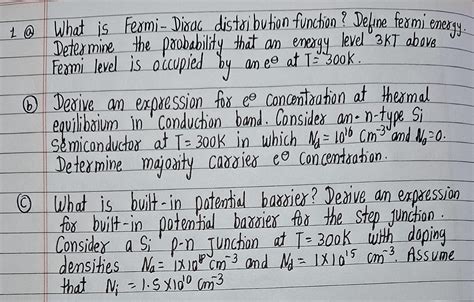 1 (a) What is Fermi-Dirac distribution function? Define fermi energy.
Determine the probability that an energy level 3KT above
Fermi level is occupied by an e⊖ at T= 300K.
(b) Derive an expression for e⊖ concentration at thermal
equilibrium in Conduction band. Consider an n-type Si
Semiconductor at T=300K in which Nd=10¹⁶ cm⁻³ and Na=0.
Determine majority carrier e⊖ Concentration.
(c) What is built-in potential barrier? Derive an expression
for built-in potential barrier for the step junction.
Consider a Si p-n Junction at T=300K with doping
densities Na = cm⁻³ and Nd = 1X10¹⁵ cm⁻³. Assume
that Ni = 1.5X10¹⁰ cm⁻³